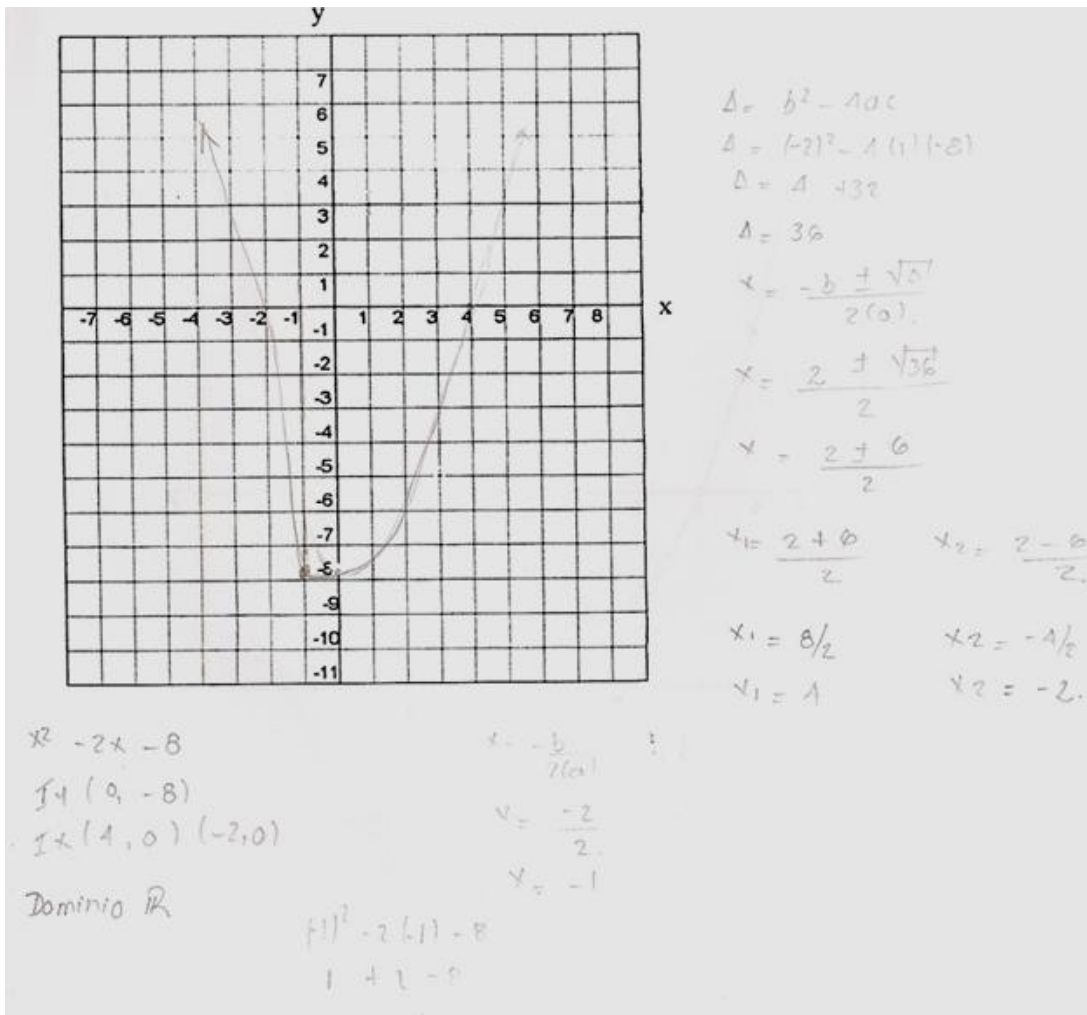 y
7
6
5
4
3
2
1
-7 -6 -5 -4 -3 -2 -1 1 2 3 4 5 6 7 8 x
-1
-2
-3
-4
-5
-6
-7
-8
-9
-10
-11
Δ = b² - 4ac
Δ = (-2)² - 4 (1) (-8)
Δ = 4 +32
Δ = 36
x = -b ± √Δ / 2(a).
x = 2 ± √36 / 2
x = 2 ± 6 / 2
x1 = 2 + 6 / 2 x2 = 2 - 6 / 2.
x1 = 8/2 x2 = -4/2
x1 = 4 x2 = -2.
x² - 2x - 8
Iy (0, -8)
Ix (4, 0) (-2,0)
Dominio ℝ
x = -b / 2(a)
x = -2 / 2.
x = -1
(-1)² - 2 (-1) - 8
1 + 2 - 8